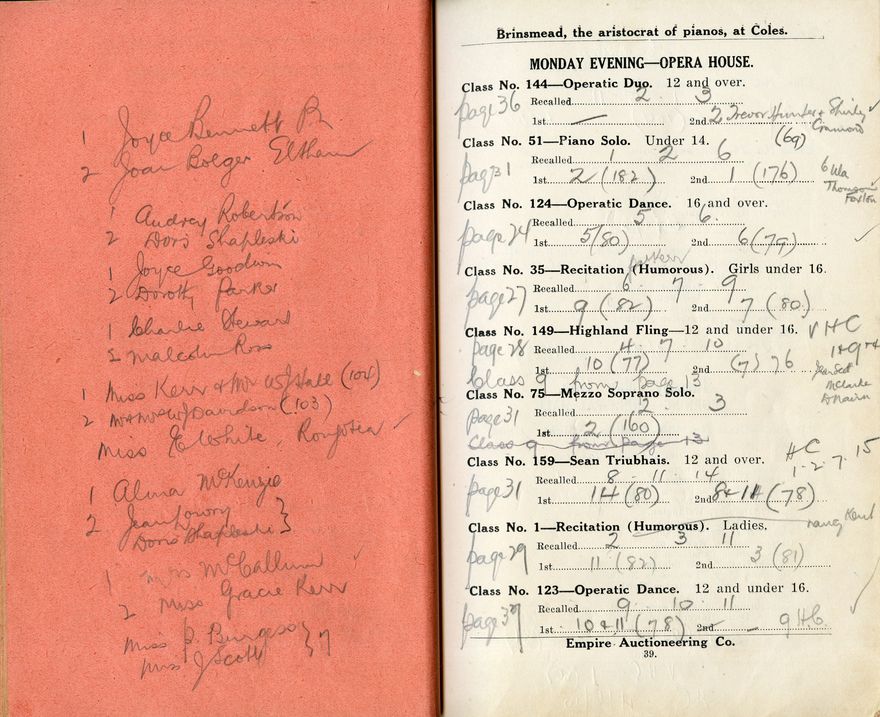 1 Joyce Bennett
2 Joan Bolger Eltham
1 Audrey Robertson
2 Doris Shapleski
1 Joyce Goodwin
2 Dorothy Parker
1 Charlie Stewart
2 Malcolm Ross
1 Miss Kerr & Mr W J Hall (104)
2 Mr & Mrs W J Davidson (103)
Miss E White, Rongotea
1 Alma McKenzie
2 Jean Lowry
Doris Shapleski
1 McCallum
2 Miss Gracie Kerr
Miss P. Burgess
Miss J Scott
Brinsmead, the aristocrat of pianos, at Coles.
MONDAY EVENING—OPERA HOUSE.
Class No. 144—Operatic Duo. 12 and over.
page 36 Recalled 2 3
1st — 2nd 2 Trevor Hunter & Shirley
(69)
Class No. 51—Piano Solo. Under 14.
page 31 Recalled 1 2 6
1st 2 (182) 2nd 1 (176)
6
Thomson
Foxton
Class No. 124—Operatic Dance. 16 and over.
page 24 Recalled 5 6
1st 5 (80) 2nd 6 (79)
Class No. 35—Recitation (Humorous). Girls under 16.
page 27 Recalled 6 7 9
1st 9 (82) 2nd 7 (80)
Class No. 149—Highland Fling—12 and under 16. VHC
page 28 Recalled 4 7 10
1st 10 (77) 2nd (7) 76
Class 9 from page 13
Class No. 75—Mezzo Soprano Solo.
page 31 Recalled 2 3
1st 2 (160)
Class 9 from page 13
Class No. 159—Sean Triubhais. 12 and over. HC
1-2-7-15
page 31 Recalled 8 11 14
1st 14 (80) 2nd 8+11 (78)
Class No. 1—Recitation (Humorous). Ladies. Nancy Kent
page 29 Recalled 2 3 11
1st 11 (82) 2nd 3 (81)
Class No. 123—Operatic Dance. 12 and under 16.
page 37 Recalled 9 10 11
1st 10+11 (78) 2nd 9 HC
Empire Auctioneering Co.
39.